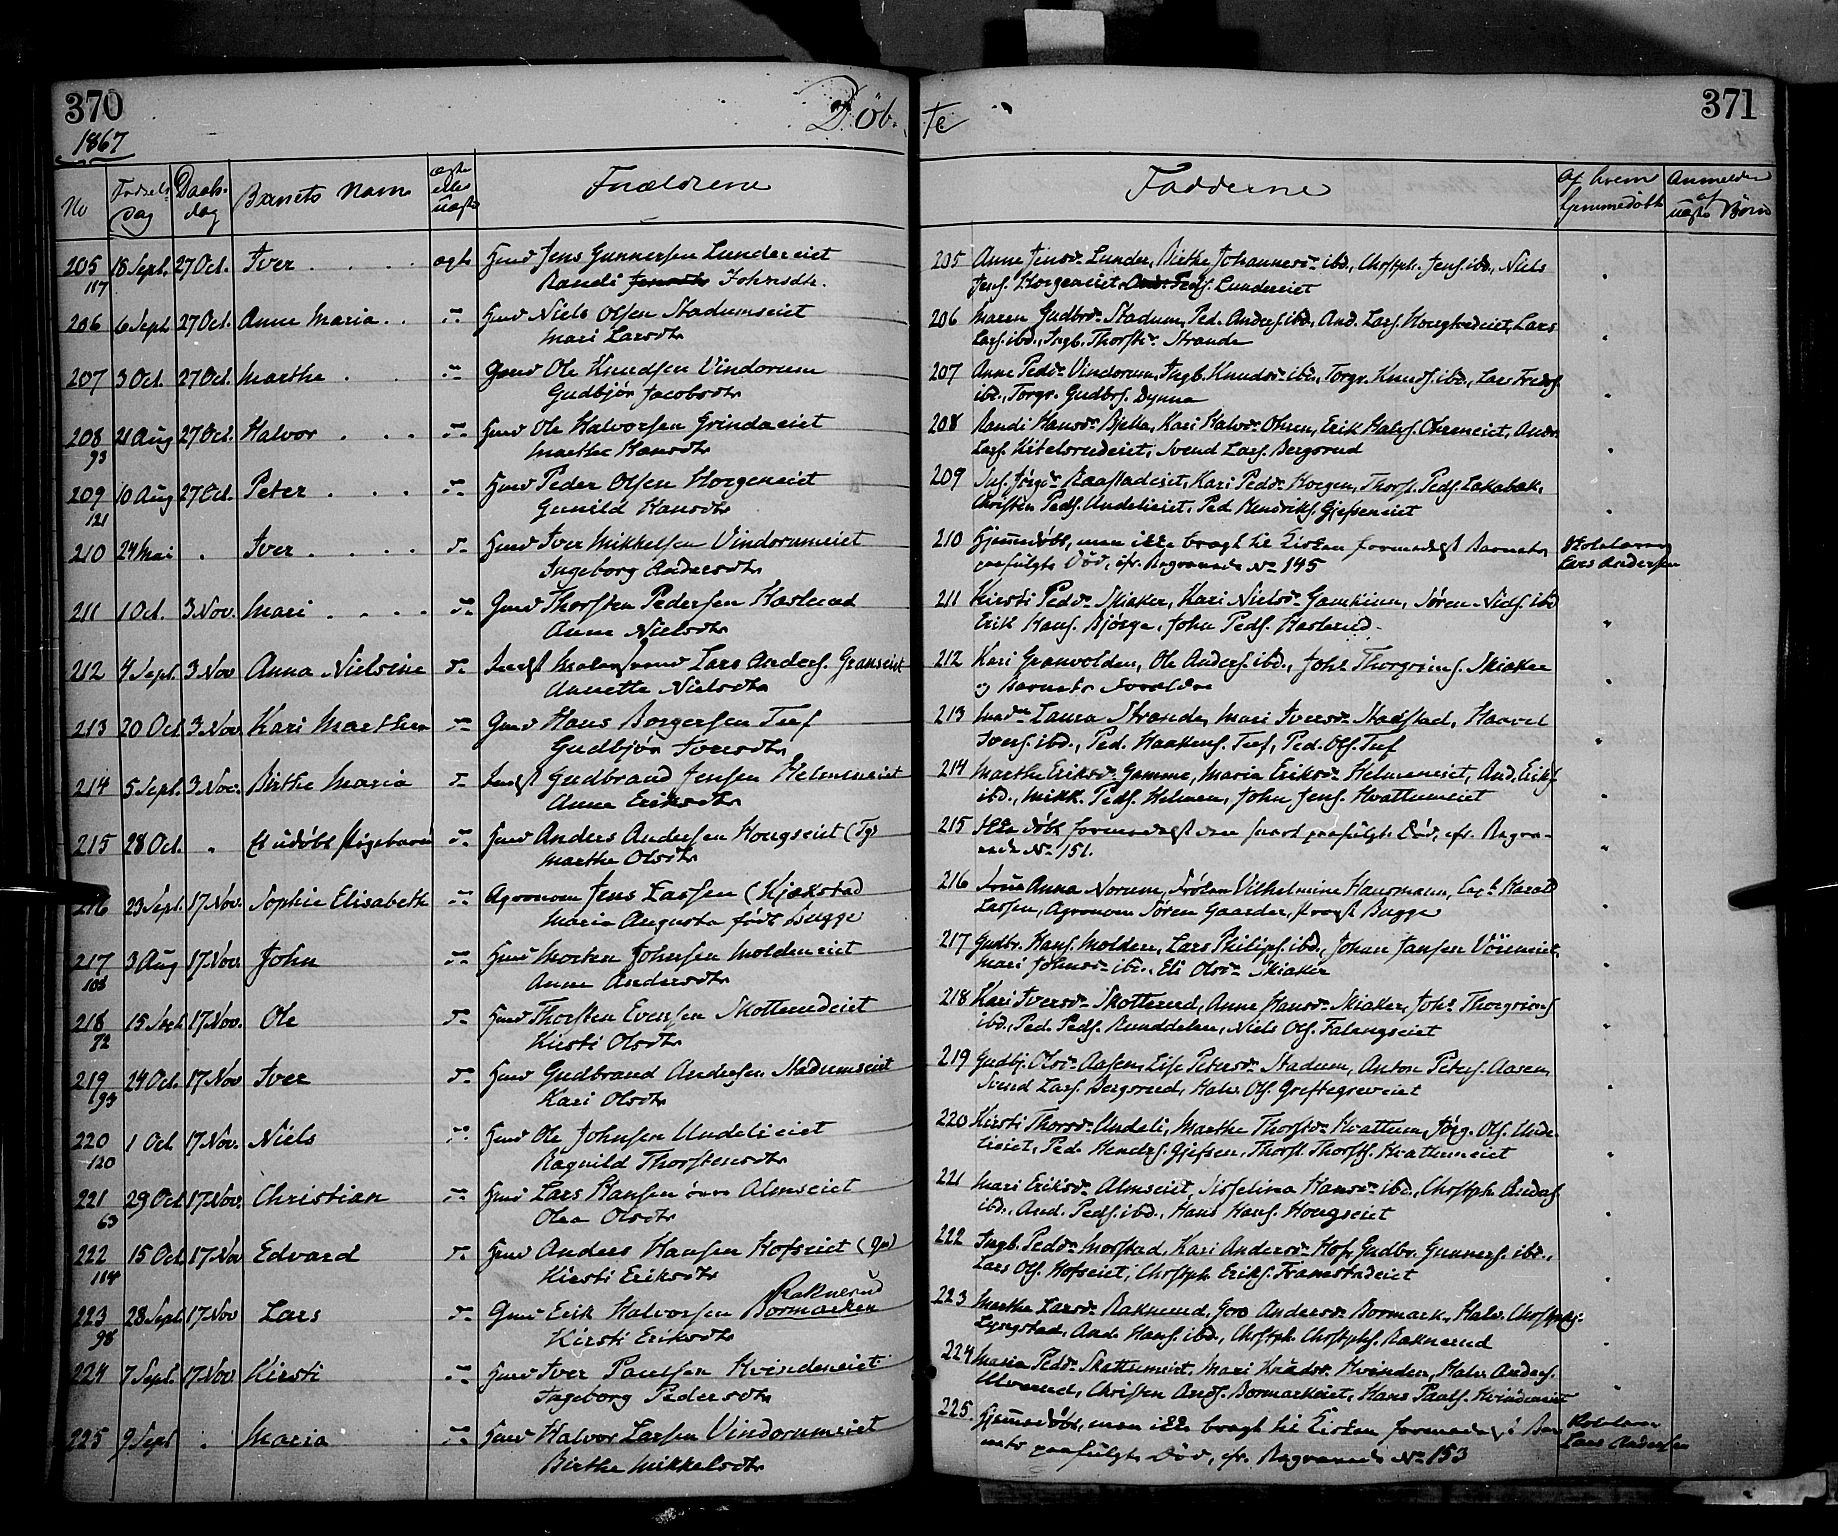 370
1867
Døb-
No
Fødsels Dag
Daabs-dag
Barnets Navn
ægte eller uægte
Forældrene
205 18 Sept. 27 Oct. Iver . . . . ægte Huusmd Jens Gunnersen Lundereiet
117 Randi Johnsdtr.
206 6 Sept 27 Oct. Anne Maria . . Niels Olsen Stadumseiet
Mari Larsdtr
207 3 Oct. 27 Oct. Marthe . . . Gmd Ole Knudsen Vindorum
Gudbjør Jacobsdtr
208 21 Aug 27 Oct. Halvor . . . Ole Halvorsen Grindaeiet
93 Marthe Hansdtr
209 10 Aug 27 Oct. Peter . . . . Peder Olsen Horgeneiet
121 Gunild Hansdtr
210 24 Mai " Iver . . . . Iver Mikkelsen Vindorumeiet
Ingeborg Andersdtr
211 1 Oct. 3 Nov. Mari . . . . Thorsten Pedersen Haslerud
Anne Nielsdtr
212 4 Sept. 3 Nov Anna Nielsine Lars Anders. Granseiet
Annette Nielsdtr
213 20 Oct 3 Nov. Kari Marthea Hans Borgersen Tuf
Gudbjør Iversdtr
214 5 Sept. 3 Nov. Birthe Maria Gudbrand Jensen Helmeneiet
Anne Eriksdtr
215 28 Oct. " Et udøbt Pigebarn Anders Andersen Hougseiet
Marthe Olsdtr
216 23 Sept. 17 Nov. Sophie Elisabeth Agronom Jens Lassen (Kjøkstad
Maria Augusta født Bugge
217 3 Aug 17 Nov. John Morten Johnsen Moldeneiet
108 Anne Andersdtr
218 15 Sept 17 Nov. Ole Thorsten Evensen Skotterudeiet
72 Kirsti Olsdtr
219 24 Oct. 17 Nov Iver Gudbrand Andersen Stadumseiet
93 Kari Olsdtr
220 1 Oct 17 Nov. Niels Ole Johnsen Undelieiet
120 Ragnild Thorstensdtr
221 29 Oct 17 Nov. Christian Lars Hansen øvre Almseiet
63 Olea Olsdtr
222 15 Oct 17 Nov Edvard Anders Hansen Hofseiet
114 Kirsti Eriksdtr
Raknerud
223 28 Sept 17 Nov Lars Erik Halvorsen Bormarken
98 Kirsti Eriksdtr
224 7 Sept. 17 Nov Kirsti Iver Paulsen Hvindeneiet
Ingeborg Pedersdtr
225 9 Sept " Maria Halvor Larsen Vindorumeiet
Birthe Mikkelsdtr
371
te
Fadderne
Af hvem hjemmedøbt
Anmelder af uægte Børn
205 Anne Jensdr Lunder, Birthe Johannesdr ibd., Chrstph. Jens. ibd., Niels
Jens. Horgeneiet, Lundereiet
206 Maren Gudbrdr Stadum, Ped. Anders. ibd., And. Lars. Lars
Lars. ibd., Ingb. Thorstdr Strande
207 Anne Pedr Vindorum, Ingb. Knudsdr ibd., Torgr. Knuds. ibd., Lars
ibd., Torgr. Gudbrs. Dynna
208 Randi Hansdr Bjella, Kari Halvdr Ohren, Erik Halvs. Ohreneiet, Andr.
Lars. Kitelsrudeiet, Svend Lars. Bergsrud
209 Raastadeiet, Kari Pedr Horgen, Thorst. Peds. Lakabak,
Christen Peds. Undelieiet, Ped. Hendriks. Gjefseneiet
210 Hjemmedøbt, men ikke bragt til Kirken formedelst Barnets Skolelærer
paafulgte Død, cfr. Begravede No 145 Lars Andersen
211 Kirsti Pedr Skiaker, Kari Nielsdr Gamkinn, Søren Niels. ibd
Erik Hans. Bjørge, John Peds. Haslerud
212 Kari Granvolden, Ole Anders. ibd., Joh. Thorgrims. Skiaker
og Barnets Forældre
213 Laura Strande, Mari Iversdr Stadstad, Haavel
Ivers. ibd., Ped. Haakens. Tuf, Ped. Ols. Tuf
214 Marthe Eriksdr Gamme, Maria Eriksdr Helmeneiet, And. Eriks.
ibd., Mikk. Peds. Helmen, John Jens. Hvattumeiet
215 Ikke døbt formedelst den snart paafulgte Død, cfr. Begra-
vede No 151.
216 Frue Anna Norum, Frøken Vilhelmine Hausmann, Harald
Lassen, Agronom Søren Gaarder, Bugge
217 Gudbr. Hans. Molden, Lars Philips. ibd., Johan Jansen
Mari Johnsdr ibd., Eli Olsdr Skiaker
218 Kari Iversdr Skotterud, Anne Hansdr Skiaker, Joh. Thorgrims
ibd., Ped. Peds. Runddelen, Niels Ols. Falangseiet
219 Gudbj. Olsdr Aasen, Lise Petersdr Stadum, Anton Peters. Aasen,
Svend Lars. Bergsrud, Halv. Ols. Grøftegseveiet
220 Kirsti Thorsdr Undeli, Marthe Thorstdr Hvattum, Jørg. Ols. Unde-
lieiet, Ped. Hendrs. Gjefsen, Thorst. Thorsts. Hvattumeiet
221 Mari Eriksdr Almseiet, Josefina Hansdr ibd., Chrstph.
ibd., And. Peds. ibd., Hans Hans. Hougseiet
222 Ingb. Pedr Morstad, Kari Andersdr Hof, Gudbr. Gunners. ibd.,
Lars Ols. Hofseiet, Chrstph. Eriks. Framstadeiet
223 Marthe Larsdr Raknerud, Goro Andersdr Bormark, Halv. Chrstphs.
Lyngstad, And. Hans. ibd., Chrstph. Chrstphs. Raknerud
224 Maria Pedr Skattumeiet, Mari Hvinden, Halv. Anders.
Ulverud, Christen Ands. Bormarkeiet, Hans Pauls. Hvindeneiet
225. Hjemmedøbt, men ikke bragt til Kirken Skolelærer
paafulgte Død, cfr. Begravede No 153 Lars Andersen